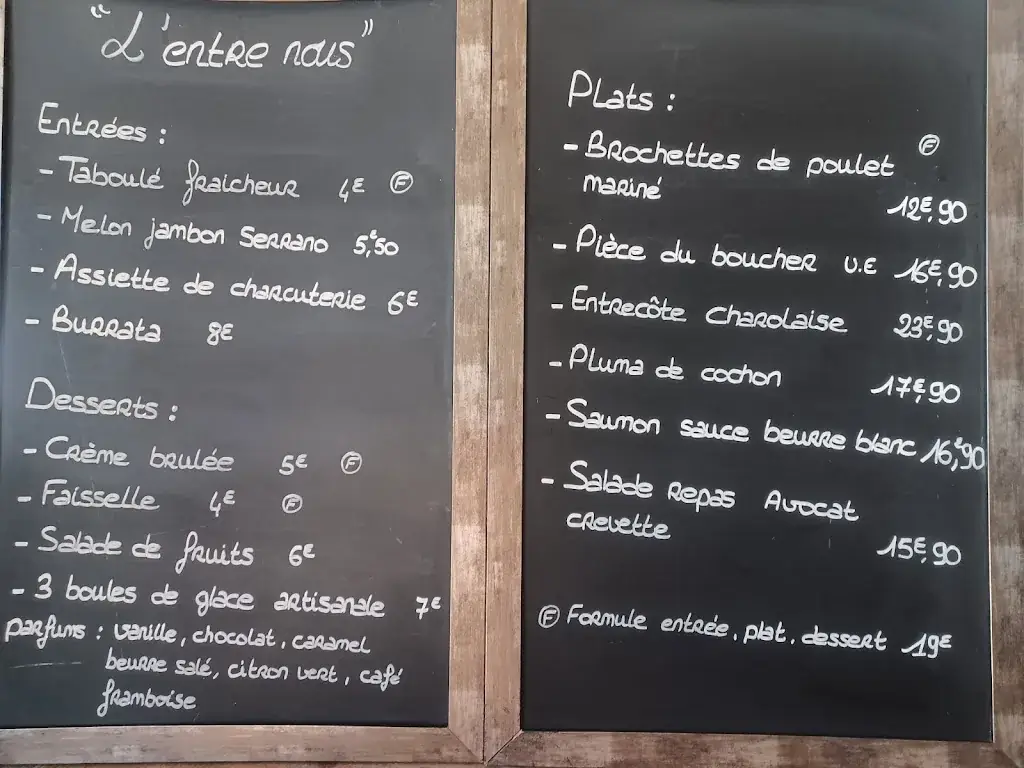 "L'entre nous"
Entrées :
- Taboulé fraicheur 4€ Ⓕ
- Melon jambon Serrano 5,€50
- Assiette de charcuterie 6€
- Burrata 8€
Desserts :
- Crème brulée 5€ Ⓕ
- Faisselle 4€ Ⓕ
- Salade de fruits 6€
- 3 boules de glace artisanale 7€
parfums : vanille, chocolat, caramel
beurre salé, citron vert, café
framboise
Plats :
- Brochettes de poulet Ⓕ
mariné 12€,90
- Pièce du boucher U.E 16€,90
- Entrecôte Charolaise 23€,90
- Pluma de cochon 17€,90
- Saumon sauce beurre blanc 16,€90
- Salade Repas Avocat
crevette 15€,90
Ⓕ Formule entrée, plat, dessert 19€